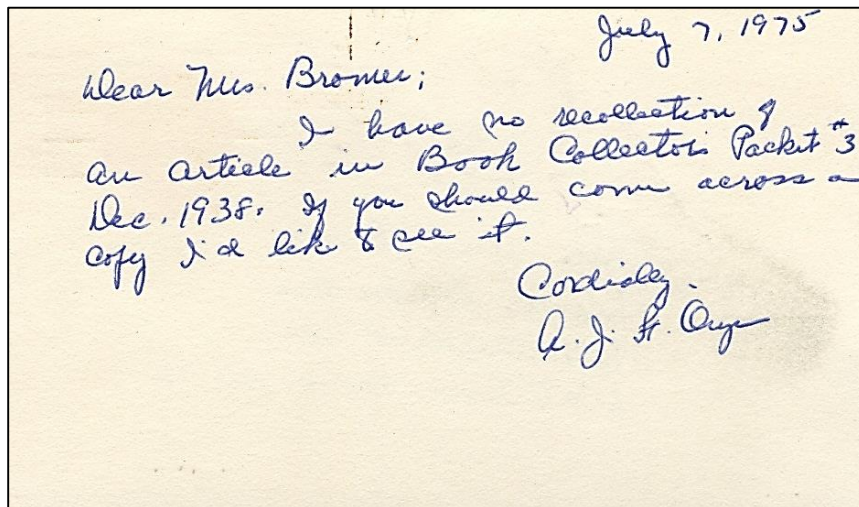 July 7, 1975
Dear Mrs. Bromer;
I have no recollection of
an article in Book Collector's Packet #3
Dec. 1938. If you should come across a
copy I'd like to see it.
Cordially,
A. J. St. Onge